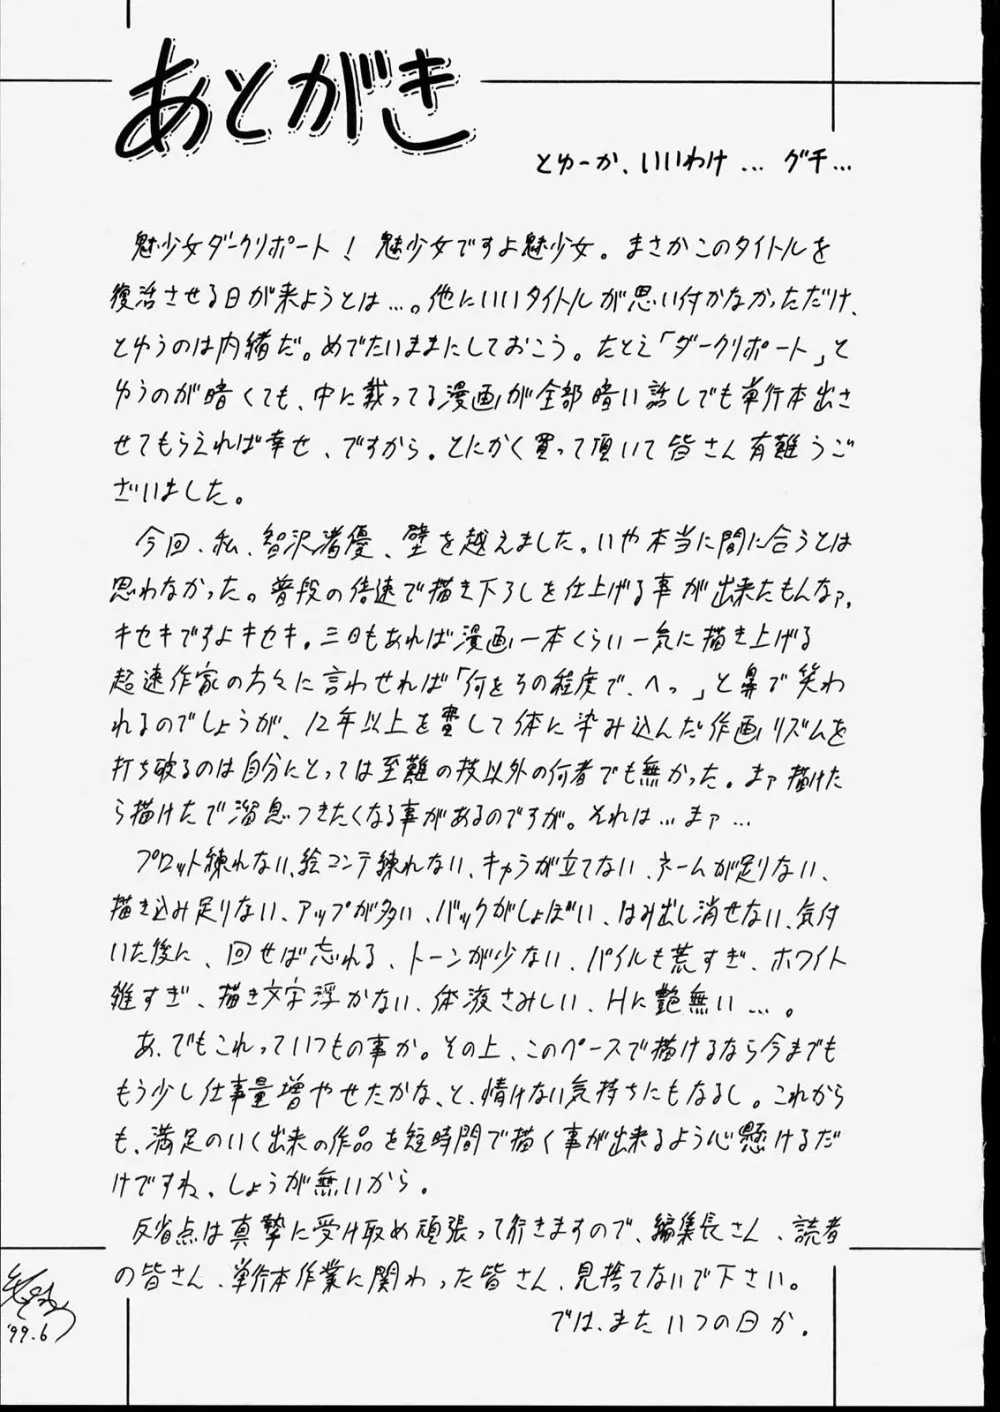 あとがき
とゆーか、いいわけ…グチ…
魅少女ダークリポート! 魅少女ですよ魅少女。まさかこのタイトルを
復活させる日が来ようとは…。他にいいタイトルが思い付かなかっただけ、
とゆうのは内緒だ。めでたいままにしておこう。たとえ「ダークリポート」と
ゆうのが暗くても、中に載ってる漫画が全部暗い話しでも単行本出さ
せてもらえれば幸せ、ですから。とにかく買って頂いて皆さん有難うご
ざいました。
今回、私、智沢渚優、壁を越えました。いや本当に間に合うとは
思わなかった。普段の倍速で描き下ろしを仕上げる事が出来たもんなァ。
キセキですよキセキ。三日もあれば漫画一本くらい一気に描き上げる
超速作家の方々に言わせれば「何をその程度で、へっ」と鼻で笑わ
れるのでしょうが、12年以上を費して体に染み込んだ作画リズムを
打ち破るのは自分にとっては至難の技以外の何者でも無かった。まァ描けた
ら描けたで溜息つきたくなる事があるのですが。それは…まァ…
プロット練れない、絵コンテ練れない、キャラが立てない、ネームが足りない、
描き込み足りない、アップが多い、バックがしょぼい、はみ出し消せない、気付
いた後に、回せば忘れる、トーンが少ない、パイルも荒すぎ、ホワイト
雑すぎ、描き文字浮かない、体液さみしい、Hに艶無い…。
あ、でもこれっていつもの事か。その上、このペースで描けるなら今までも
もう少し仕事量増やせたかな、と、情けない気持ちにもなるし。これから
も、満足のいく出来の作品を短時間で描く事が出来るよう心懸けるだ
けですね、しょうが無いから。
反省点は真摯に受け取め頑張って行きますので、編集長さん、読者
の皆さん、単行本作業に関わった皆さん、見捨てないで下さい。
では、またいつの日か。
'99.6